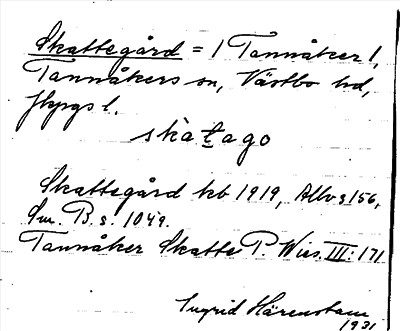 Skattegård = 1 Tannåker 1,
Tannåkers sn, Västbo hd,
Jkpgs l.
skàtago
Skattegård kb 1919, Allvs 156,
Sm. B. s. 1049.
Tannåker Skatte P. Wies. III: 171
Ingrid Härenstam
1931